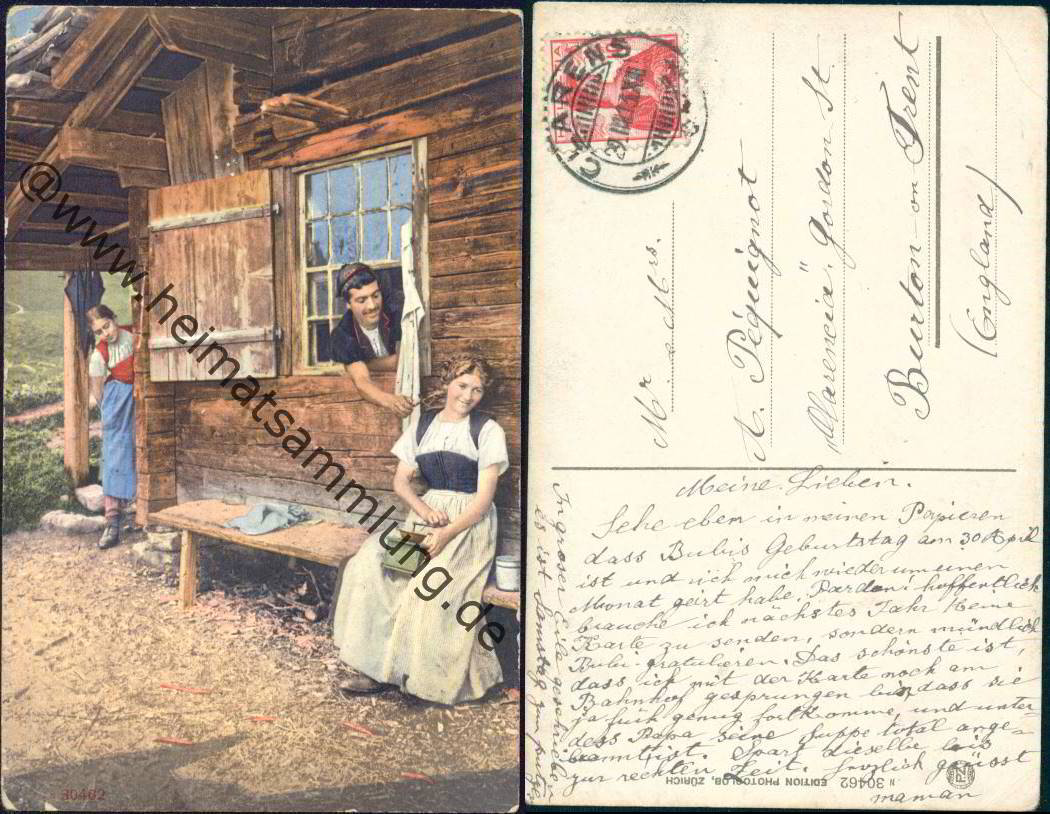 @www.heimatsammlung.de
30462
CLARENS
Mr & Mrs.
A. Péquignot
"Clarencia" Gordon St.
Burton-on Trent
(England)
Meine Lieben.
Sehe eben in meinen Papieren
dass Bubis Geburtstag am 30 April
ist und ich mich wieder um einen
Monat geirt habe. Pardon! hoffentlich
brauche ich nächstes Jahr keine
Karte zu senden, sondern mündlich
Bubi gratulieren. Das schönste ist,
dass ich mit der Karte noch am
Bahnhof gesprungen bin, dass sie
ja früh genug fortkomme und unter-
dess Papa seine Suppe total ange-
brannt ist. Spart dieselbe bis
zur rechten Zeit. herzlich grüsst
maman
In grosser Eile geschrieben
es ist Samstag zum putzen
N 30462 EDITION PHOTOGLOB, ZÜRICH